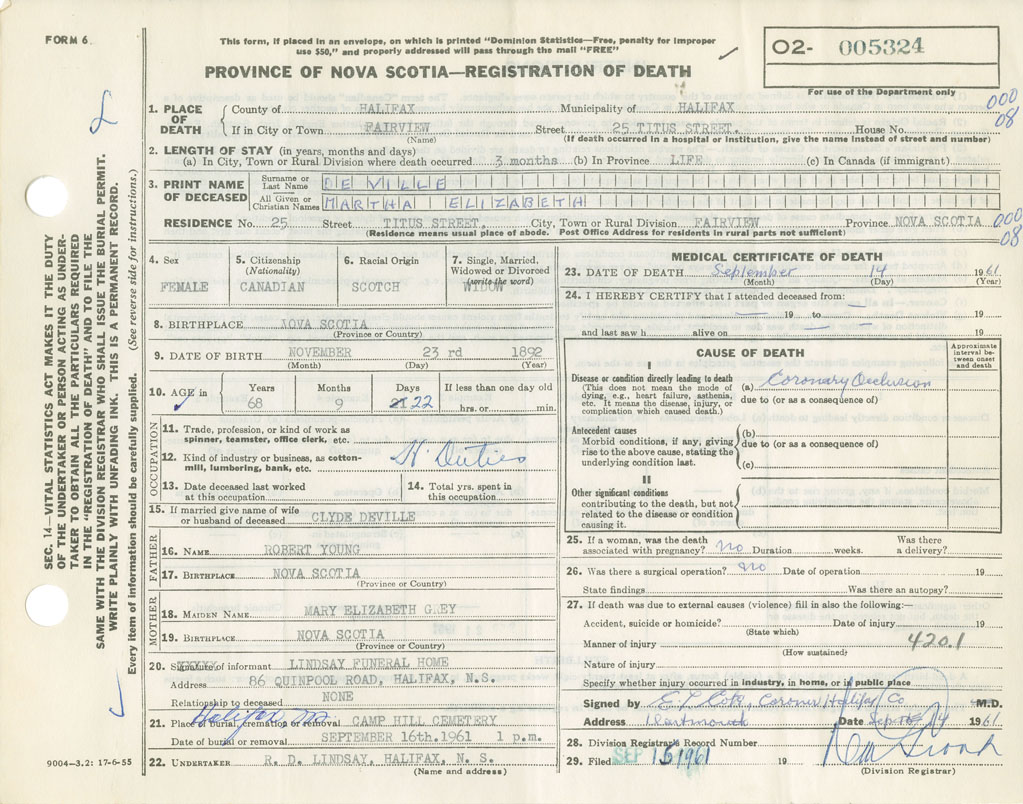 FORM 6.
This form, if placed in an envelope, on which is printed "Dominion Statistics—Free, penalty for improper
use $50," and properly addressed will pass through the mail "FREE"
02- 005324
For use of the Department only
PROVINCE OF NOVA SCOTIA—REGISTRATION OF DEATH
000
08
1. PLACE OF DEATH
County of HALIFAX Municipality of HALIFAX
If in City or Town FAIRVIEW Street 25 TITUS STREET. House No.
(Name) (If death occurred in a hospital or institution, give the name instead of street and number)
2. LENGTH OF STAY (in years, months and days)
(a) In City, Town or Rural Division where death occurred 3 months (b) In Province LIFE (c) In Canada (if immigrant)
3. PRINT NAME OF DECEASED
Surname or Last Name DE VILLE
All Given or Christian Names MARTHA ELIZABETH
RESIDENCE No. 25 Street TITUS STREET, City, Town or Rural Division FAIRVIEW Province NOVA SCOTIA
(Residence means usual place of abode. Post Office Address for residents in rural parts not sufficient)
000
08
4. Sex
FEMALE
5. Citizenship
(Nationality)
CANADIAN
6. Racial Origin
SCOTCH
7. Single, Married,
Widowed or Divorced
(write the word)
WIDOW
8. BIRTHPLACE NOVA SCOTIA
(Province or Country)
9. DATE OF BIRTH NOVEMBER 23 rd 1892
(Month) (Day) (Year)
10. AGE in
Years Months Days If less than one day old
68 9 21 22 hrs. or min.
OCCUPATION
11. Trade, profession, or kind of work as
spinner, teamster, office clerk, etc.
12. Kind of industry or business, as cotton-
mill, lumbering, bank, etc.
H. Duties
13. Date deceased last worked
at this occupation
14. Total yrs. spent in
this occupation
15. If married give name of wife
or husband of deceased CLYDE DEVILLE
FATHER
16. NAME ROBERT YOUNG
17. BIRTHPLACE NOVA SCOTIA
(Province or Country)
MOTHER
18. MAIDEN NAME MARY ELIZABETH GREY
19. BIRTHPLACE NOVA SCOTIA
(Province or Country)
20. Signature of informant LINDSAY FUNERAL HOME
Address 86 QUINPOOL ROAD, HALIFAX, N.S.
Relationship to deceased NONE
Halifax
21. Place of burial, cremation or removal CAMP HILL CEMETERY
Date of burial or removal SEPTEMBER 16th.1961 1 p.m.
22. UNDERTAKER R. D. LINDSAY, HALIFAX, N. S.
(Name and address)
MEDICAL CERTIFICATE OF DEATH
23. DATE OF DEATH September 14 1961
(Month) (Day) (Year)
24. I HEREBY CERTIFY that I attended deceased from: —
— 19 to — 19
and last saw h alive on — — 19
CAUSE OF DEATH
Approximate
interval be-
tween onset
and death
I
Disease or condition directly leading to death
(This does not mean the mode of
dying, e.g., heart failure, asthenia,
etc. It means the disease, injury, or
complication which caused death.)
(a) Coronary Occlusion
due to (or as a consequence of)
Antecedent causes
Morbid conditions, if any, giving
rise to the above cause, stating the
underlying condition last.
(b)
due to (or as a consequence of)
(c)
II
Other significant conditions
contributing to the death, but not
related to the disease or condition
causing it.
25. If a woman, was the death Was there
associated with pregnancy? no Duration weeks. a delivery?
26. Was there a surgical operation? no Date of operation 19
State findings Was there an autopsy?
27. If death was due to external causes (violence) fill in also the following:—
Accident, suicide or homicide? Date of injury 19
(State which)
Manner of injury 420.1
(How sustained)
Nature of injury
Specify whether injury occurred in industry, in home, or in public place
Signed by Coroner Halifax Co M.D.
Address Dartmouth Date Sept 14 1961
28. Division Registrar's Record Number
29. Filed SEP 15 1961 19
(Division Registrar)
SEC. 14—VITAL STATISTICS ACT MAKES IT THE DUTY
OF THE UNDERTAKER OR PERSON ACTING AS UNDER-
TAKER TO OBTAIN ALL THE PARTICULARS REQUIRED
IN THE "REGISTRATION OF DEATH" AND TO FILE THE
SAME WITH THE DIVISION REGISTRAR WHO SHALL ISSUE THE BURIAL PERMIT.
WRITE PLAINLY WITH UNFADING INK. THIS IS A PERMANENT RECORD.
Every item of information should be carefully supplied. (See reverse side for instructions.)
9004-3.2: 17-6-55